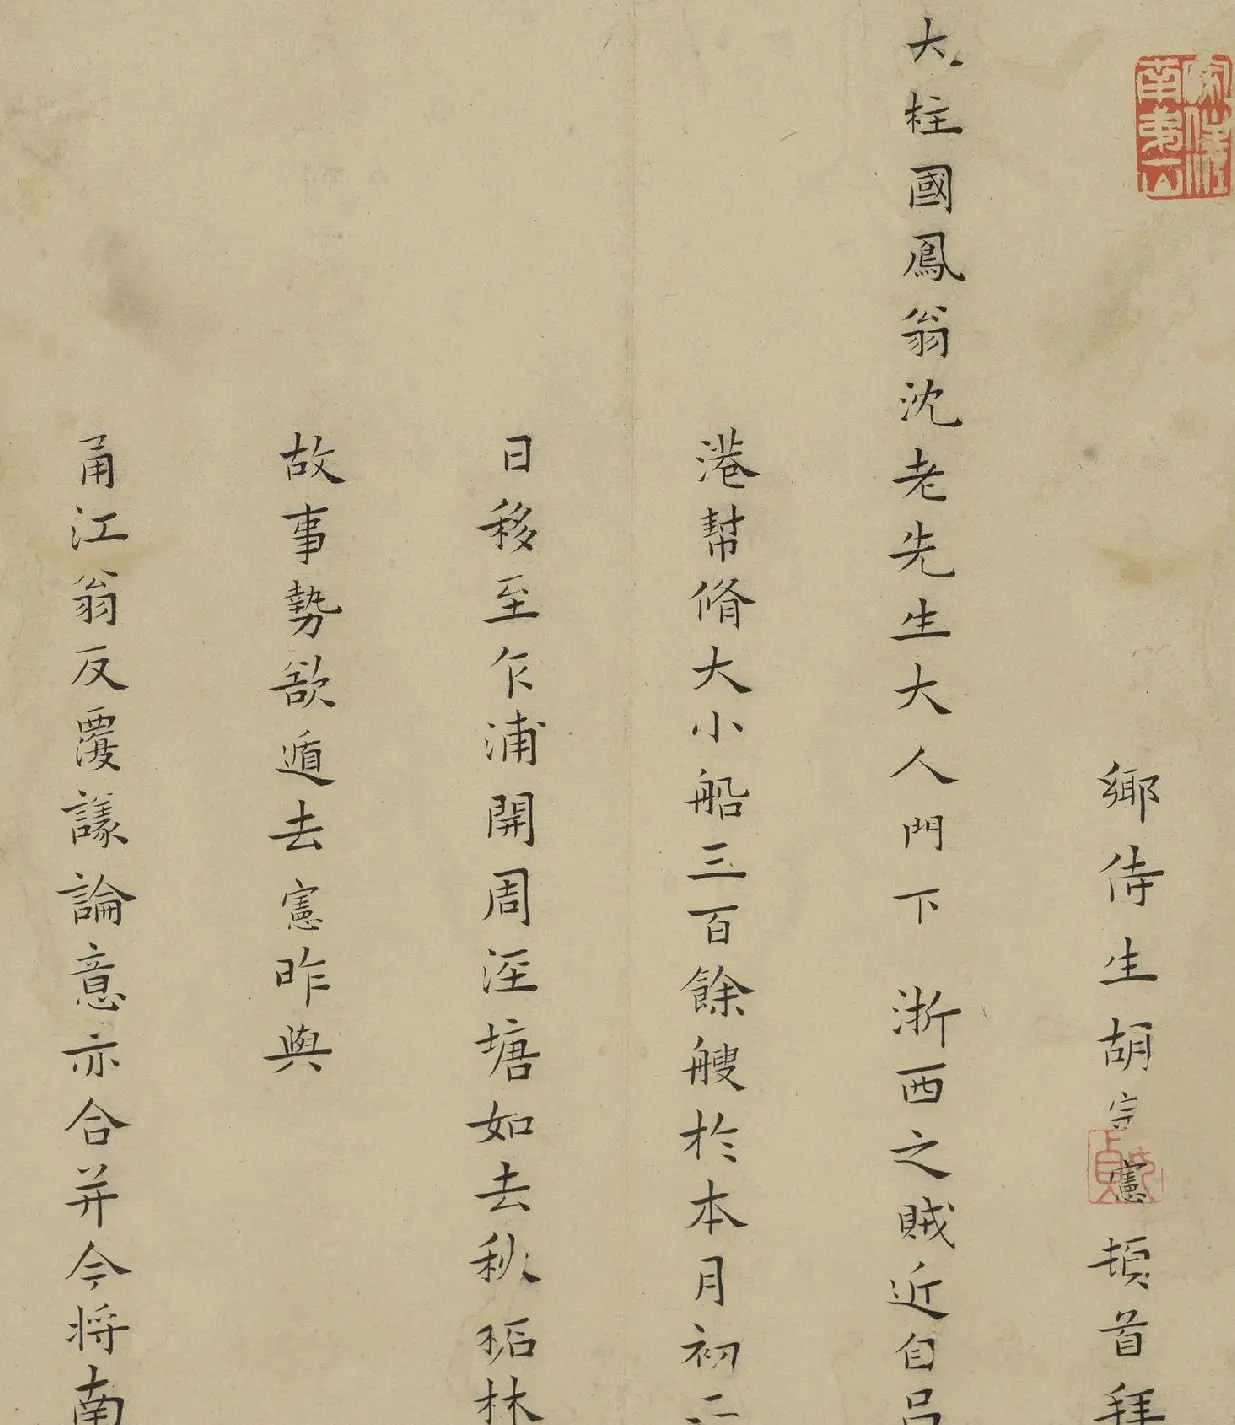 鄉侍生胡宗憲頓首拜
大柱國鳳翁沈老先生大人門下浙西之賊近自呂
港幫脩大小船三百餘艘於本月初二
日移至乍浦開周涇塘如去秋柘林
故事勢欲遁去憲昨與
甬江翁反覆議論意亦合并今將南